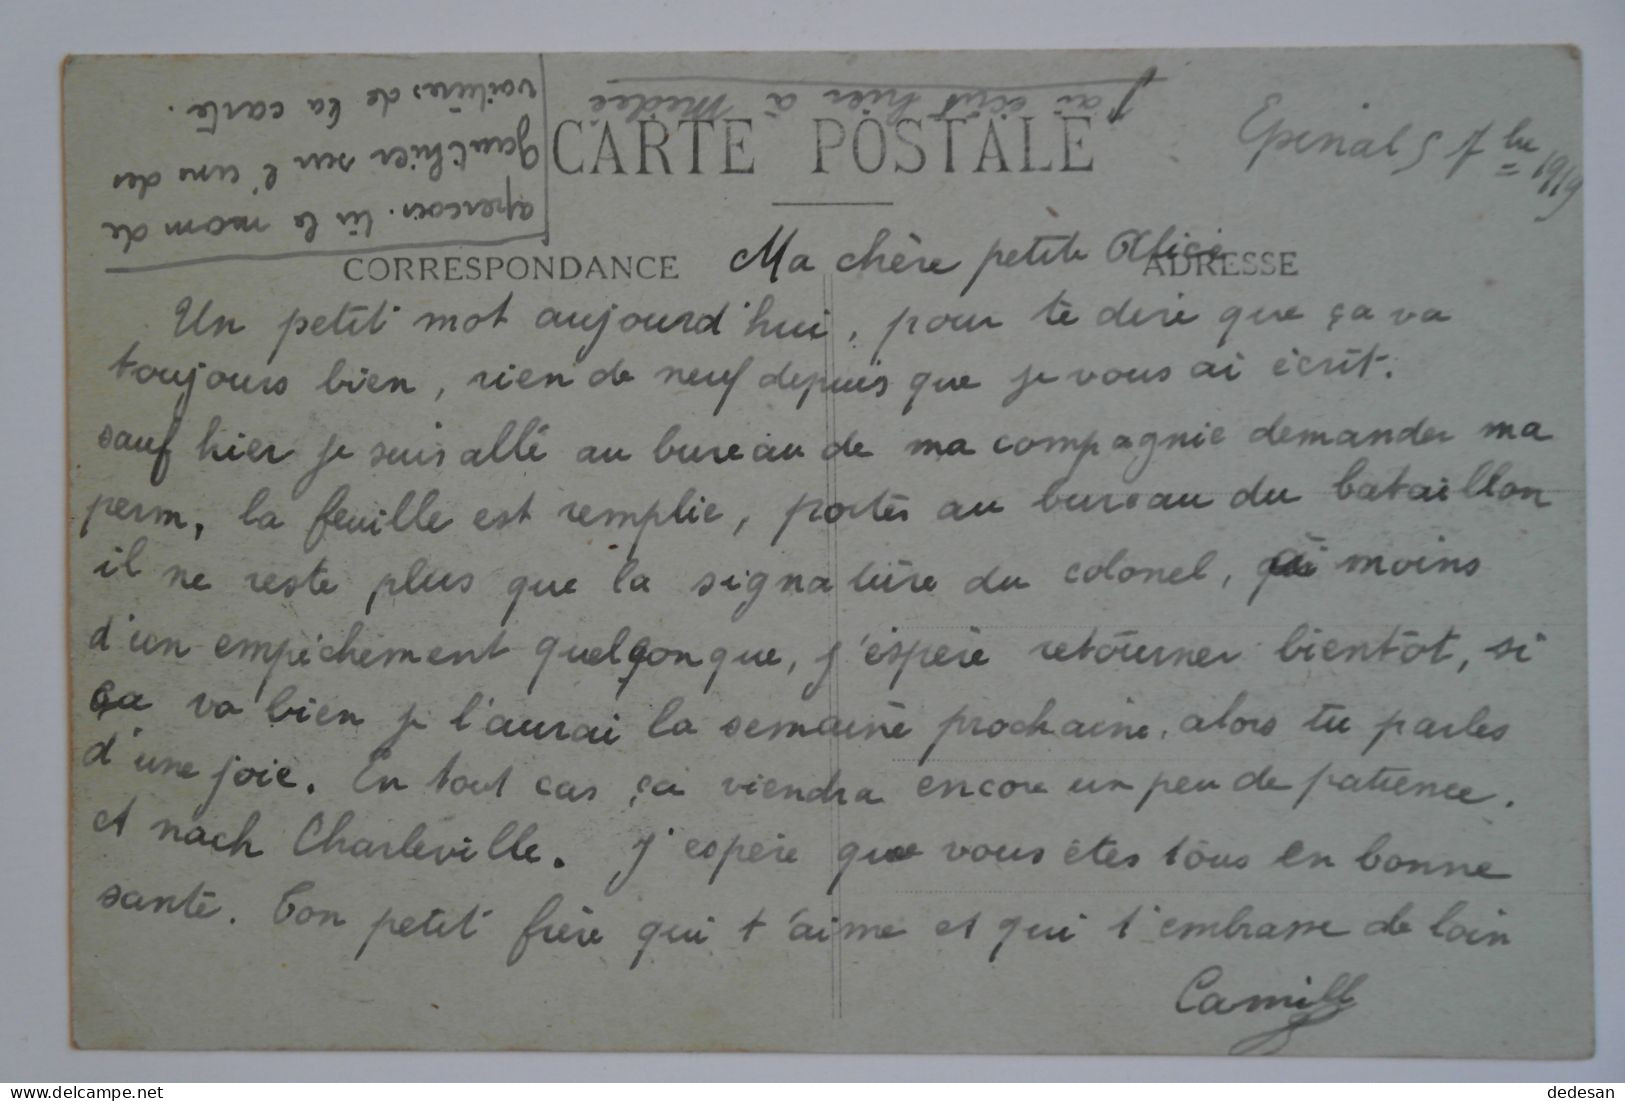 Epinal 5 7bre 1919
CARTE POSTALE
CORRESPONDANCE
ADRESSE
Ma chère petite Alice
Un petit mot aujourd'hui, pour te dire que ça va
toujours bien, rien de neuf depuis que je vous ai écrit.
sauf hier je suis allé au bureau de ma compagnie demander ma
perm, la feuille est remplie, portés au bureau du bataillon
il ne reste plus que la signature du colonel, à moins
d'un empêchement quelçonque, j'espère retourner bientôt, si
ça va bien je l'aurai la semaine prochaine, alors tu parles
d'une joie. En tout cas ça viendra encore un peu de patience.
et nach Charleville. J'espère que vous êtes tous en bonne
santé. Ton petit frère qui t'aime et qui t'embrasse de loin
Camille
J'ai écrit hier à Médée
apercois-tu le nom de
gauthier sur l'une des
voitures de la carte.
dedesan